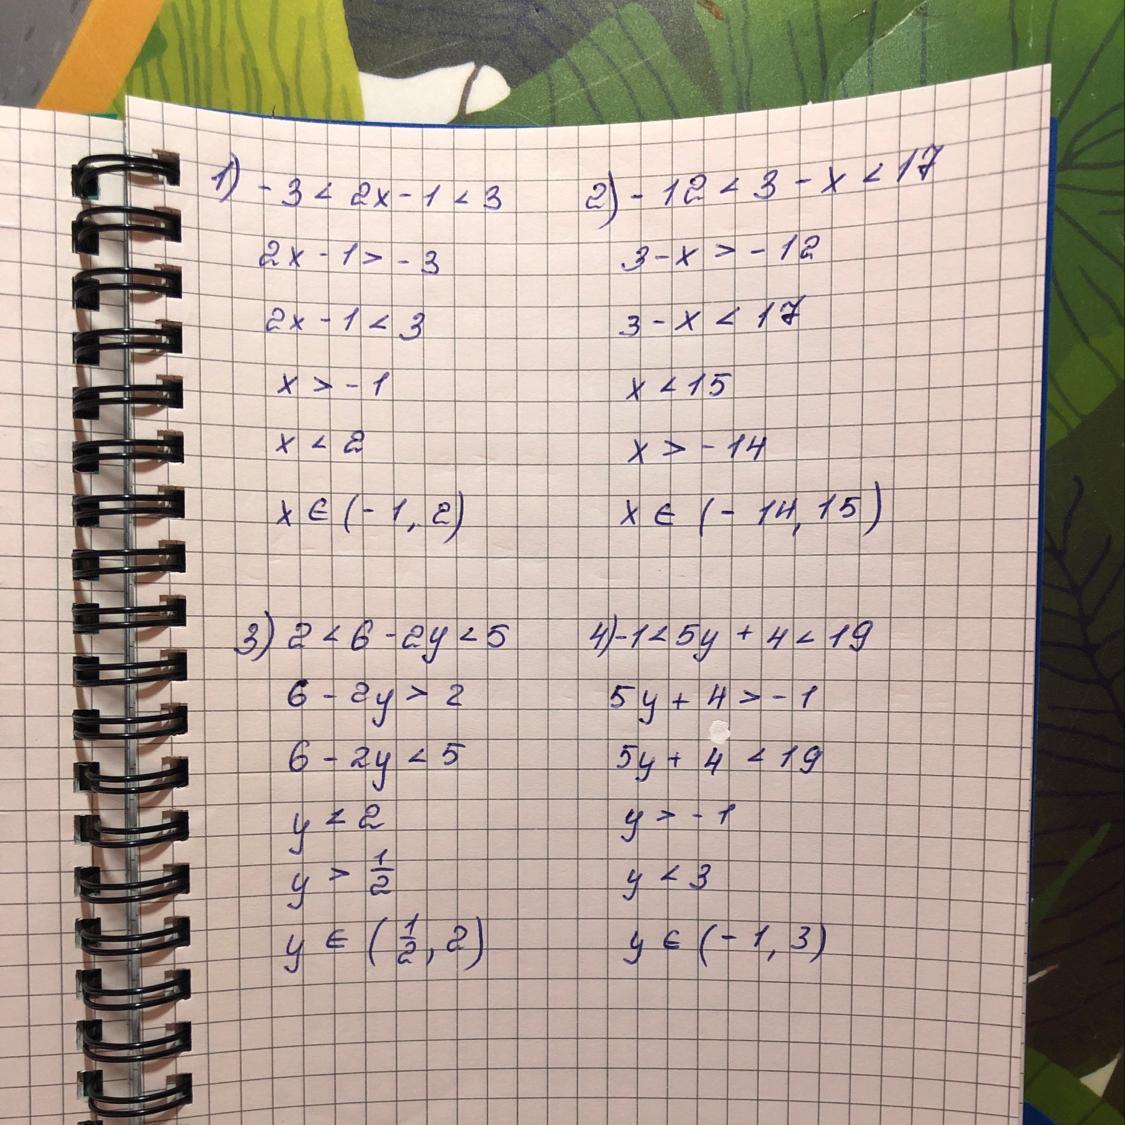 1) -3 < 2x - 1 < 3
2x - 1 > -3
2x - 1 < 3
x > -1
x < 2
x ∈ (-1, 2)
2) -12 < 3 - x < 17
3 - x > -12
3 - x < 17
x < 15
x > -14
x ∈ (-14, 15)
3) 2 < 6 - 2y < 5
6 - 2y > 2
6 - 2y < 5
y < 2
y > 1/2
y ∈ (1/2, 2)
4) -1 < 5y + 4 < 19
5y + 4 > -1
5y + 4 < 19
y > -1
y < 3
y ∈ (-1, 3)